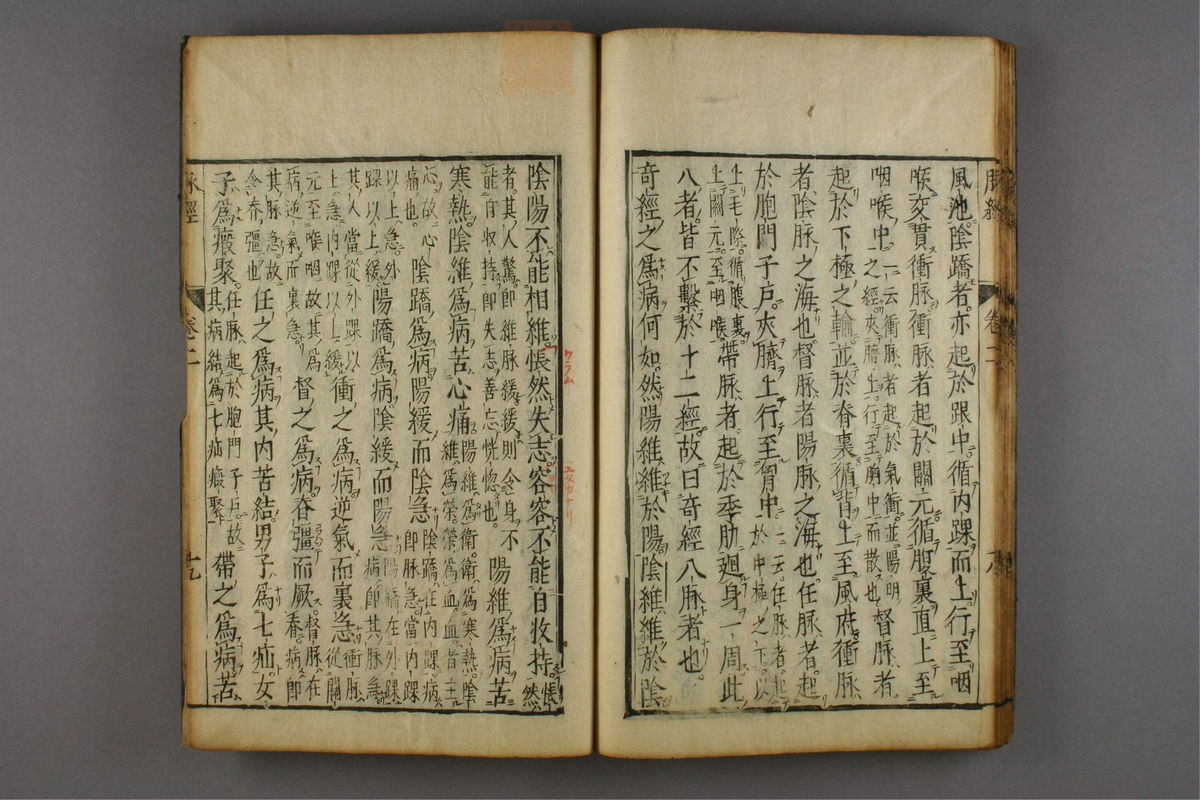 風池。陰蹻者。亦起於跟中。循内踝而上。行至咽
喉。交貫衝脉。衝脉者。起於關元。循腹裏。直上。至
咽喉中。一云。衝脉者。起於氣衝。並陽明之經。夾臍上行。至胸中而散也。督脉者。
起於下極之輸。並於脊裏。循背上。至風府。衝脉
者。陰脉之海也。督脉者。陽脉之海也。任脉者。起
於胞門子戶。夾臍上行。至胷中。一云。任脉者。起於中極之下。以
上毛際。循腹裏。上關元。至咽喉。帶脉者。起於季肋。廻身一周。此
八者。皆不繫於十二經。故曰奇經八脉者也。
奇經之爲病何如。然。陽維維於陽。陰維維於陰。
陰陽不能相維。悵然失志。容容不能自收持。悵然
者。其人驚。即維脉緩。緩則令身不能自收持。即失志善忘恍惚也。陽維爲病。苦
寒熱。陰維爲病。苦心痛。陽維爲衛。衛爲寒熱。陰維爲榮。榮爲血。血者主
心。故心痛也。陰蹻爲病。陽緩而陰急。陰蹻在内踝。病即脉急。當内踝
以上急。外踝以上緩。陽蹻爲病。陰緩而陽急。陽蹻在外踝。病即其脉急。
其人當從外踝以上急。内踝以上緩。衝之爲病。逆氣而裏急。衝脉從關
元至喉咽。故其爲病。逆氣而裏急。督之爲病。脊彊而厥。督脉在脊。病即
其脉急。故令脊彊也。任之爲病。其内苦結。男子爲七疝。女
子爲瘕聚。任脉起於胞門子戶。故其病結。爲七疝瘕聚。帶之爲病。苦
脉經
卷二
脉經
卷二
九
クラム